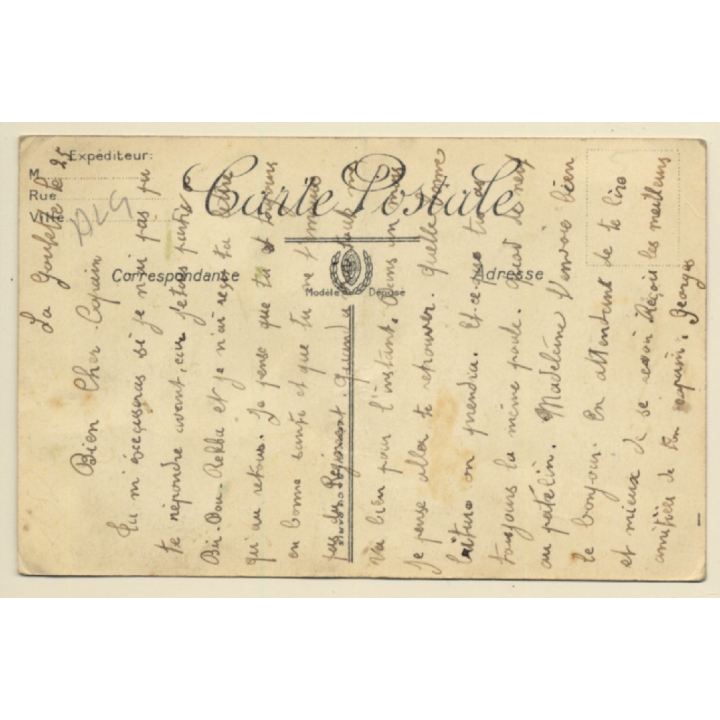 Expéditeur:
M
Rue
Ville
Carte Postale
Correspondance
Adresse
Modèle Déposé
DLG
La Goulette le 25
Bien Cher Copain
Tu m'excuseras si je n'ai pas pu
te répondre avant, car j'étais parti à
Bir-Bou-Rekba et je n'ai reçu ta lettre
qu'au retour. Je pense que tu es toujours
en bonne santé et que tu ne t'ennuie
pas du Régiment. Quand à moi tout
va bien pour l'instant. Dans un mois
Je pense aller te retrouver. Quelle bonne
biture on prendra. Et ce que tu as
toujours la même poule. Quoi de neuf
au patelin. Madeleine t'envoie bien
le bonjour. En attendant de te lire
et mieux de se revoir Reçois les meilleurs
amitiés de ton copain. Georges